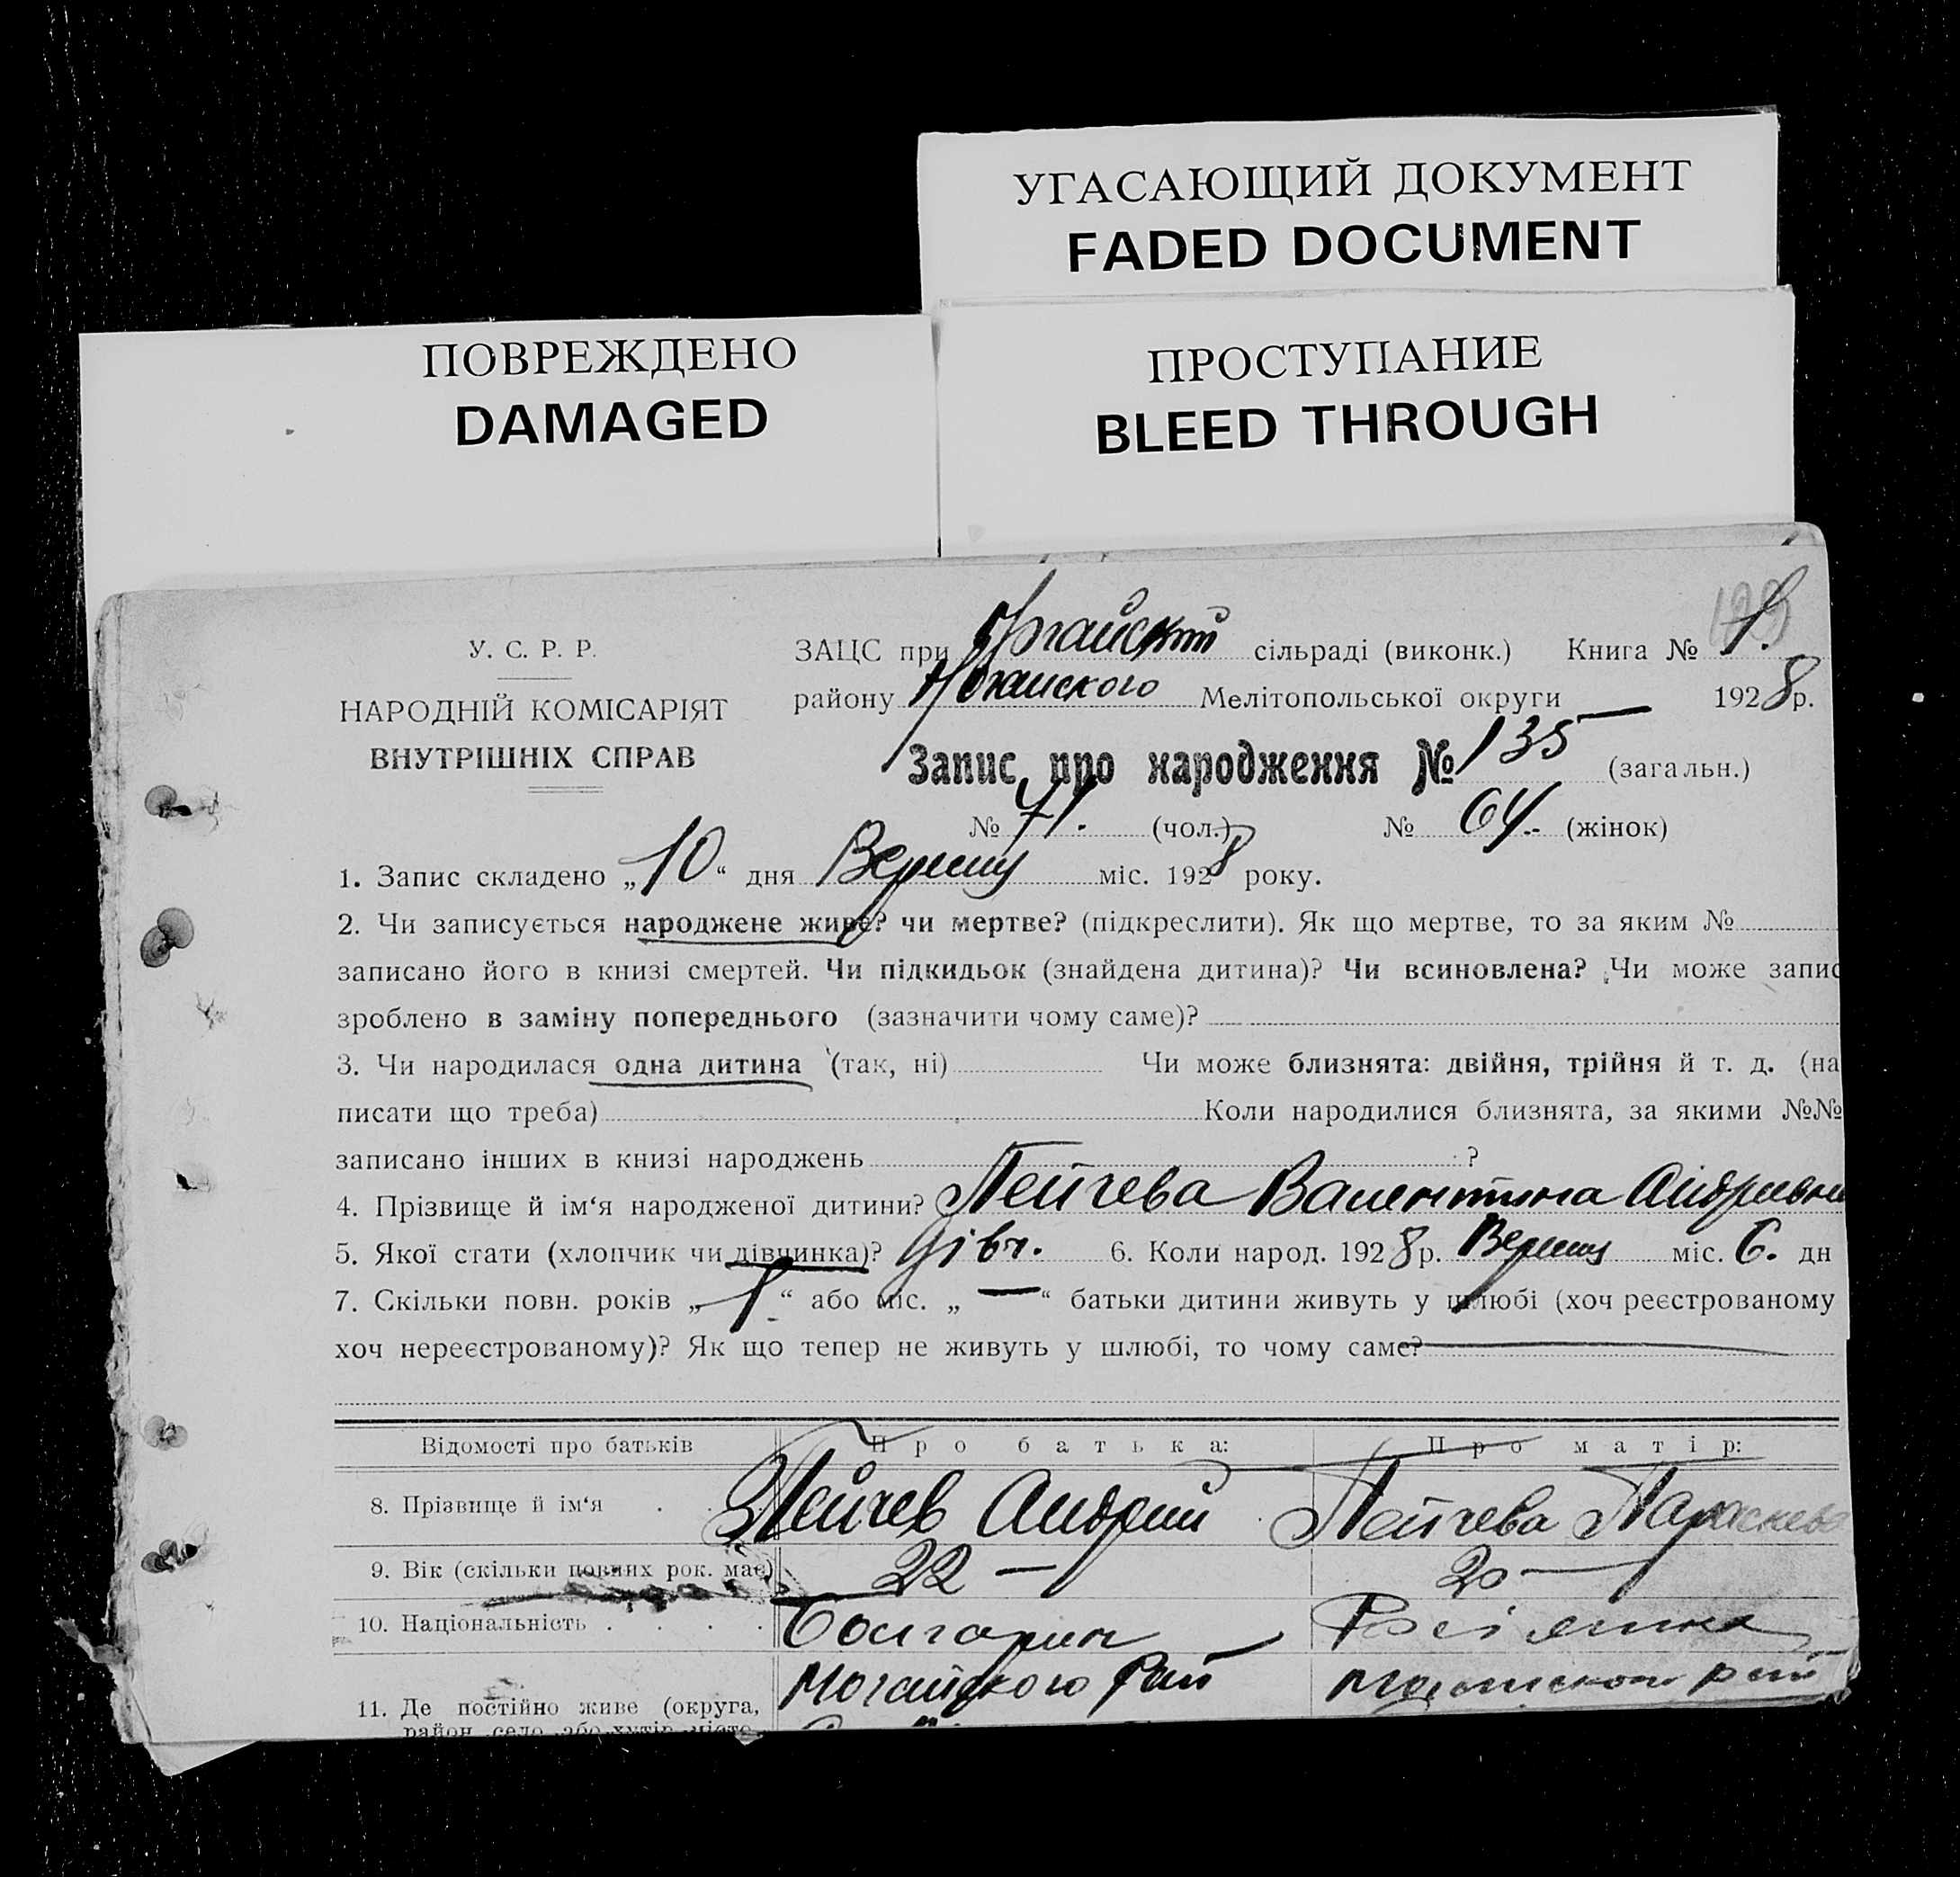 УГАСАЮЩИЙ ДОКУМЕНТ
FADED DOCUMENT
ПОВРЕЖДЕНО
DAMAGED
ПРОСТУПАНИЕ
BLEED THROUGH
У. С. Р. Р.
НАРОДНІЙ КОМІСАРІЯТ
ВНУТРІШНІХ СПРАВ
ЗАЦС при сільраді (виконк.) Книга № 1.
району Мелітопольської округи 1928 р.
Запис про народження № 135 (загальн.)
№ 71. (чол.) № 64. (жінок)
1. Запис складено „10“ дня міс. 1928 року.
2. Чи записується народжене живе? чи мертве? (підкреслити). Як що мертве, то за яким №
записано його в книзі смертей. Чи підкидьок (знайдена дитина)? Чи всиновлена? Чи може запис
зроблено в заміну попереднього (зазначити чому саме)?
3. Чи народилася одна дитина (так, ні) Чи може близнята: двійня, трійня й т. д. (на
писати що треба) Коли народилися близнята, за якими №№
записано інших в книзі народжень ?
4. Прізвище й ім‘я народженої дитини? Пейчева Валентина
5. Якої стати (хлопчик чи дівчинка)? Дівч. 6. Коли народ. 1928 р. міс. 6. дн
7. Скільки повн. років „1“ або міс. „—“ батьки дитини живуть у шлюбі (хоч реєстрованому
хоч нереєстрованому)? Як що тепер не живуть у шлюбі, то чому саме?
Відомості про батьків Про батька: Про матір:
8. Прізвище й ім‘я Пейчев Андрий Пейчева Параскева
9. Вік (скільки повних рок. має) 22 — 20 —
10. Національність Болгарин Росіянка
11. Де постійно живе (округа, Ногайского Рай
район, село або хутір, місто